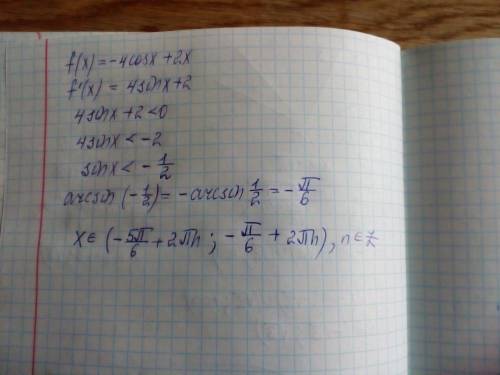 f(x)=-4cosx+2x
f'(x) = 4sinx+2
4sinx+2<0
4sinx<-2
sinx<-1/2
arcsin(-1/2)=-arcsin 1/2=-π/6
x∈(-5π/6+2πn; -π/6+2πn), n∈Z